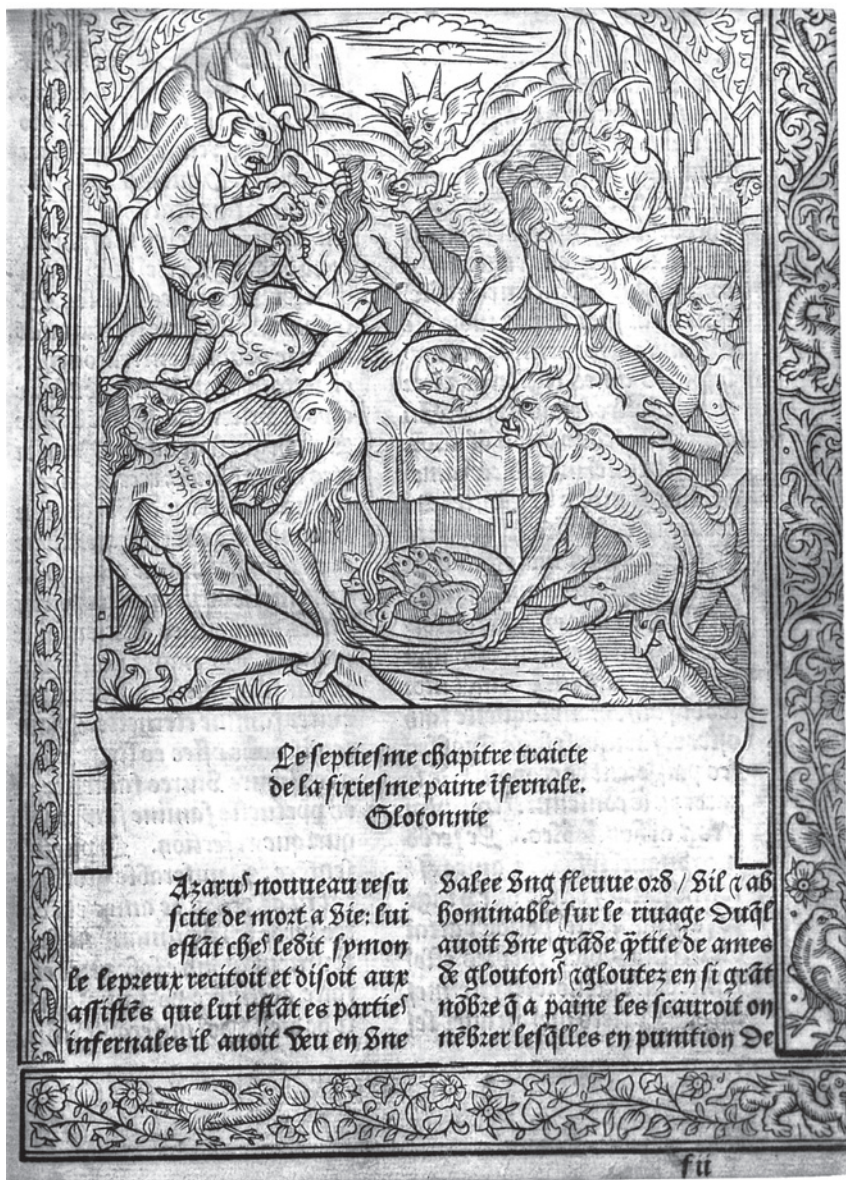 Le septiesme chapitre traicte
de la sixiesme paine ĩfernale.
Glotonnie
Azarus nouueau resu
scite de mort a vie: lui
estãt ches ledit symon
le lepreux recitoit et disoit aux
assistẽs que lui estãt es parties
infernales il auoit veu en vne
valee vng fleuue ord / vil ⁊ ab
hominable sur le riuage duq̃l
auoit vne grãde q̃tite de ames
de gloutons ⁊ gloutez en si grãt
nõbre q̃ a paine les scauroit on
nẽbrer lesq̃lles en punition de
f ii